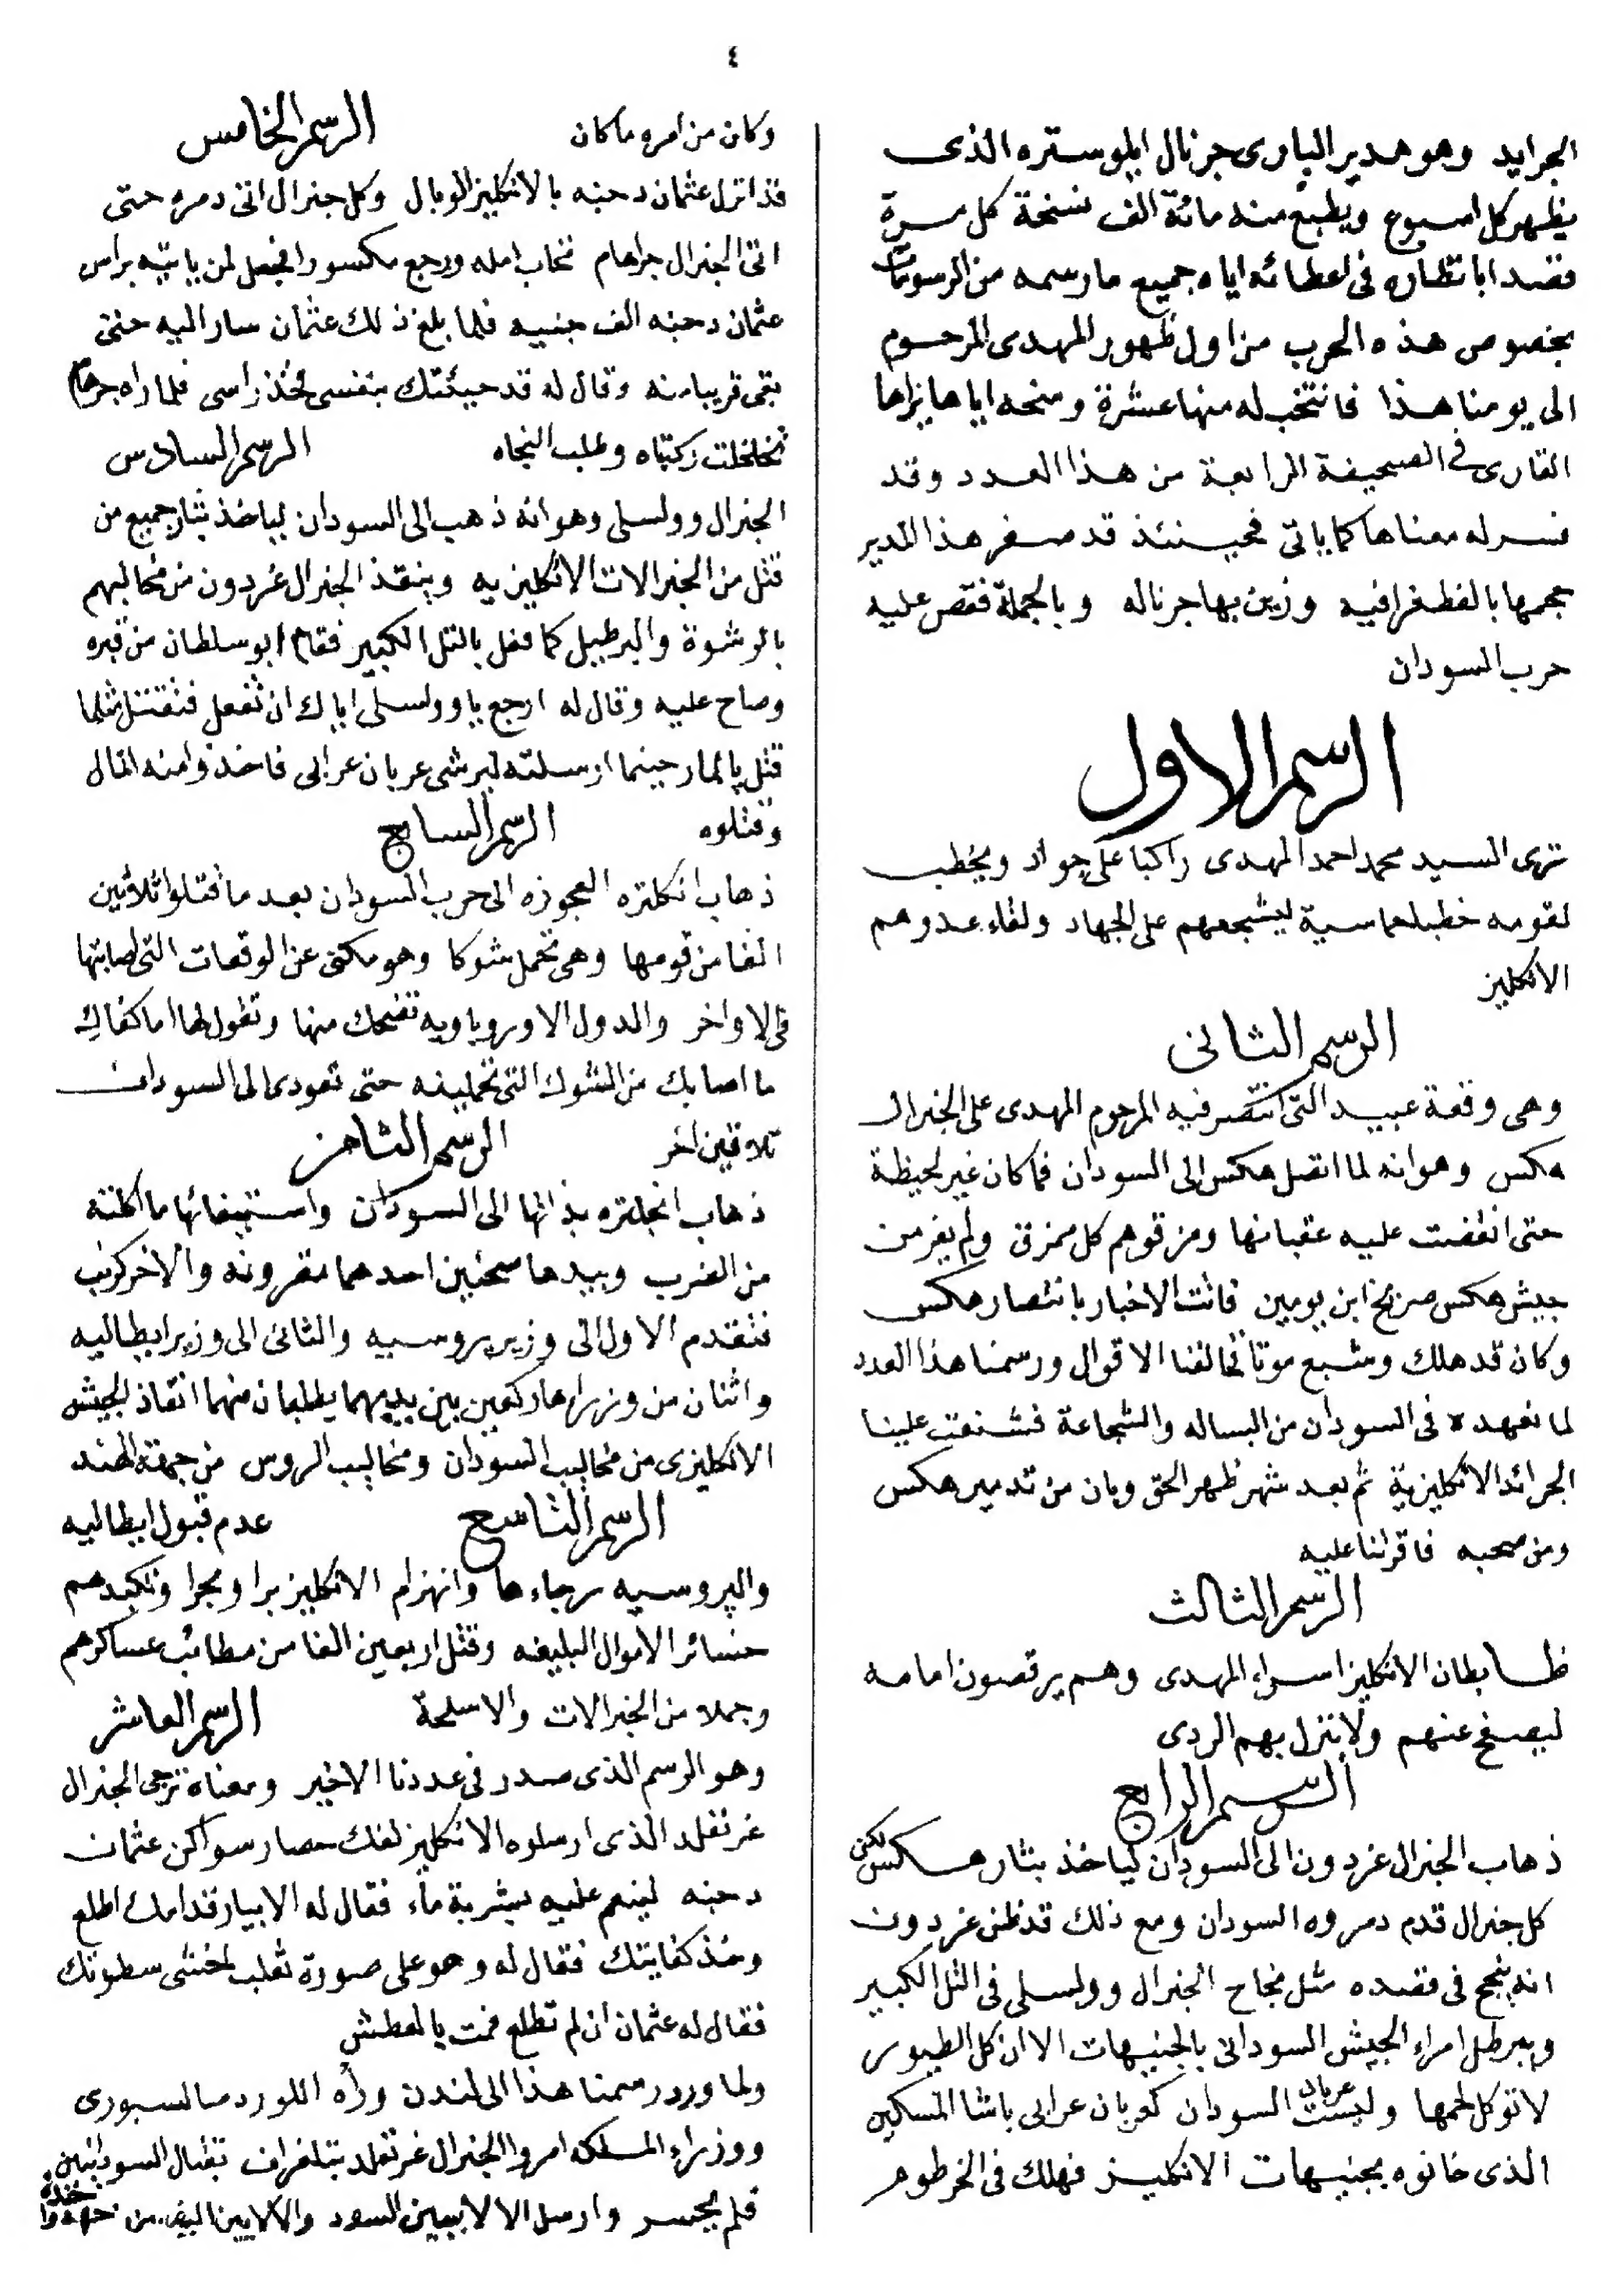 ٤
الجرايد وهو مدير الپاری جرنال ايلوستره الذی
يظهر كل اسبوع ويطبع منه مائة الف نسخة كل مرة
فقصد ابا نظاره فی اعطائه اياه جميع ما رسمه من الرسومات
بخصوص هذه الحرب من اول ظهور المهدی المرحوم
الی يومنا هذا فانتخب له منها عشرة ومنحه اياها يراها
القاری فی الصحيفة الرابعة من هذا العدد وقد
فسر له معناها كما ياتی فحينئذ قد صغر هذا المدير
حجمها بالفطغرافيه وزين بها جرناله وبالجملة فقص عليه
حرب السودان
الرسم الاول
تری السيد محمد احمد المهدی راكبا علی جواد ويخطب
لقومه خطبا حماسية ليشجعهم علی الجهاد ولقاء عدوهم
الانكليز
الرسم الثانی
وهی وقعة عبيد التی انتصر فيه المرحوم المهدی علی الجنرال
هكس وهو انه لما اتصل هكس الی السودان فما كان غير لحيظة
حتی انقضت عليه عقبانها ومزقوهم كل ممزق ولم يفر من
جيش هكس صريخ ابن يومين فاتت الاخبار بانتصار هكس
وكان قد هلك وشبع موتا فخالفنا الاقوال ورسمنا هذا العدد
لما نعهده فی السودان من البساله والشجاعة فشنعت علينا
الجرائد الانكليزية ثم بعد شهر ظهر الحق وبان من تدمير هكس
ومن صحبه فاقرلنا عليه
الرسم الثالث
ظابطان الانكليز اسراء المهدی وهم يرقصون امامه
ليصفح عنهم ولا ينزل بهم الردی
الرسم الرابع
ذهاب الجنرال غردون الی السودان لياخذ بثار هكس لكن
كل جنرال قدم دمروه السودان ومع ذلك قد ظن غردون
انه ينجح فی قصده مثل نجاح الجنرال وولسلی فی التل الكبير
ويبرطل امراء الجيش السودانی بالجنيهات الا ان كل الطيور
لا توكل لحمها وليست عربان السودان كعربان عرابی باشا المسكين
الذی خانوه بجنيهات الانكليز فهلك فی الخرطوم
وكان من امره ما كان الرسم الخامس
قد انزل عثمان دحنه بالانكليز الوبال وكل جنرال اتی دمره حتی
اتی الجنرال جراهام فخاب امله ورجع مكسورا فجعل لمن ياتيه براس
عثمان دحنه الف جنيه فلما بلغ ذلك عثمان سار اليه حتی
بقی قريبا منه وقال له قد جيئتك بنفسی فخذ راسی فلما راه جراهام
تخلخلت ركبتاه وطلب النجاه الرسم السادس
الجنرال وولسلی وهو انه ذهب الی السودان لياخذ بثار جميع من
قتل من الجنرالات الانكليزيه وينقذ الجنرال غردون من مخالبهم
بالرشوة والبرطيل كما فعل بالتل الكبير فقام ابو سلطان من قبره
وصاح عليه وقال له ارجع يا وولسلی اياك ان تفعل فتقتل مثلما
قتل پالمار حينما ارسلته ليرشی عربان عرابی فاخذوا منه المال
وقتلوه الرسم السابع
ذهاب انكلتره العجوزه الی حرب السودان بعد ما قتلوا ثلاثين
الفا من قومها وهی تحمل شوكا وهو مكنی عن الوقعات التی اصابتها
فی الاواخر والدول الاوروپاويه تضحك منها وتقول لها اما كفاك
ما اصابك من الشوك التی تحملينه حتی تعودی الی السودان
تلاقين اخر الرسم الثامن
ذهاب انجلتره بذاتها الی السودان واستيفائها ما اكلته
من الضرب وبيدها صحنين احدهما مقرونه والاخر كرنب
فتقدم الاول الی وزير پروسيه والثانی الی وزير ايطاليه
واثنان من وزراءها راكعين بين يديهما يطلبان منهما انقاذ الجيش
الانكليزی من مخاليب السودان ومخاليب الروس من جهة الهند
الرسم التاسع عدم قبول ايطاليه
والپروسيه رجاءها وانهزام الانكليز برا وبحرا وتكبدهم
خسائر الاموال البليغه وقتل اربعين الفا من عساكرهم
وجملا من الجنرالات والاسلحة الرسم العاشر
وهو الرسم الذی صدر فی عددنا الاخير ومعناه ترجی الجنرال
غرنفلد الذی ارسلوه الانكليز لفك حصار سواكن عثمان
دحنه لينعم عليه بشربة ماء فقال له الابيار قدامك اطلع
وخذ كفايتك فقال له وهو علی صورة ثعلب اختشی سطوتك
فقال له عثمان ان لم تطلع فمت بالعطش
ولما ورد رسمنا هذا الی لندن وراٰه اللورد سالسبوری
ووزراء الملكه امروا الجنرال غرنفلد بتلغراف بقتال السودانيين
فلم يجسر وارسل الالايين السود والالايين البيض من